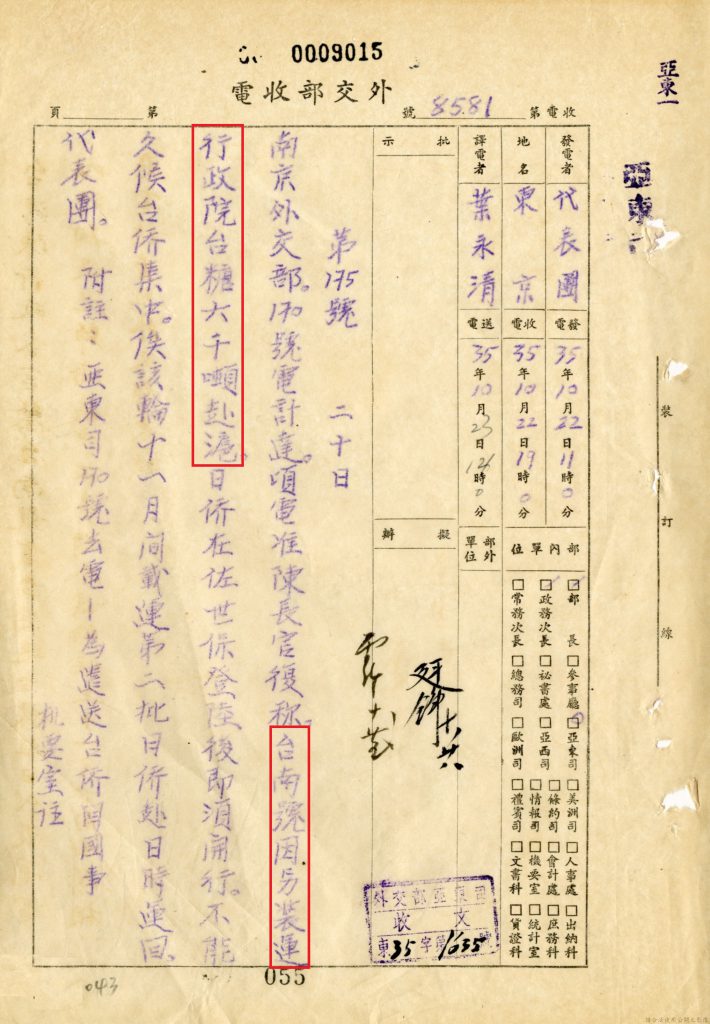 0009015
亞東一
外交部收電
收電第8581號
第 頁
發電者 代表團
地名 東京
譯電者 葉永清
批示
發電 35年10月22日11時0分
收電 35年10月22日19時0分
送電 35年10月23日12時0分
部內單位
部外單位
擬辦
□部長 □參事廳 □亞東司 □美洲司 □人事處 □出納科
□政務次長 □祕書處 □亞西司 □條約司 □會計處 □庶務科
□常務次長 □總務司 □歐洲司 □情報司 □機要室 □統計室
□禮賓司 □文書科 □貨證科
第175號 二十日
南京外交部。170號電計達。頃電准陳長官復称。台南號因另裝運
行政院台糖六千噸赴滬。日侨在佐世保登陸後即須開行。不能
久候台侨集中。俟該輪十一月間載運第二批日侨赴日時運回。
代表團。 附註：亞東司170號去電—為遣送台侨回國事
机要室注
外交部亞東司
收文
東35字第1635號
裝訂線
055
043